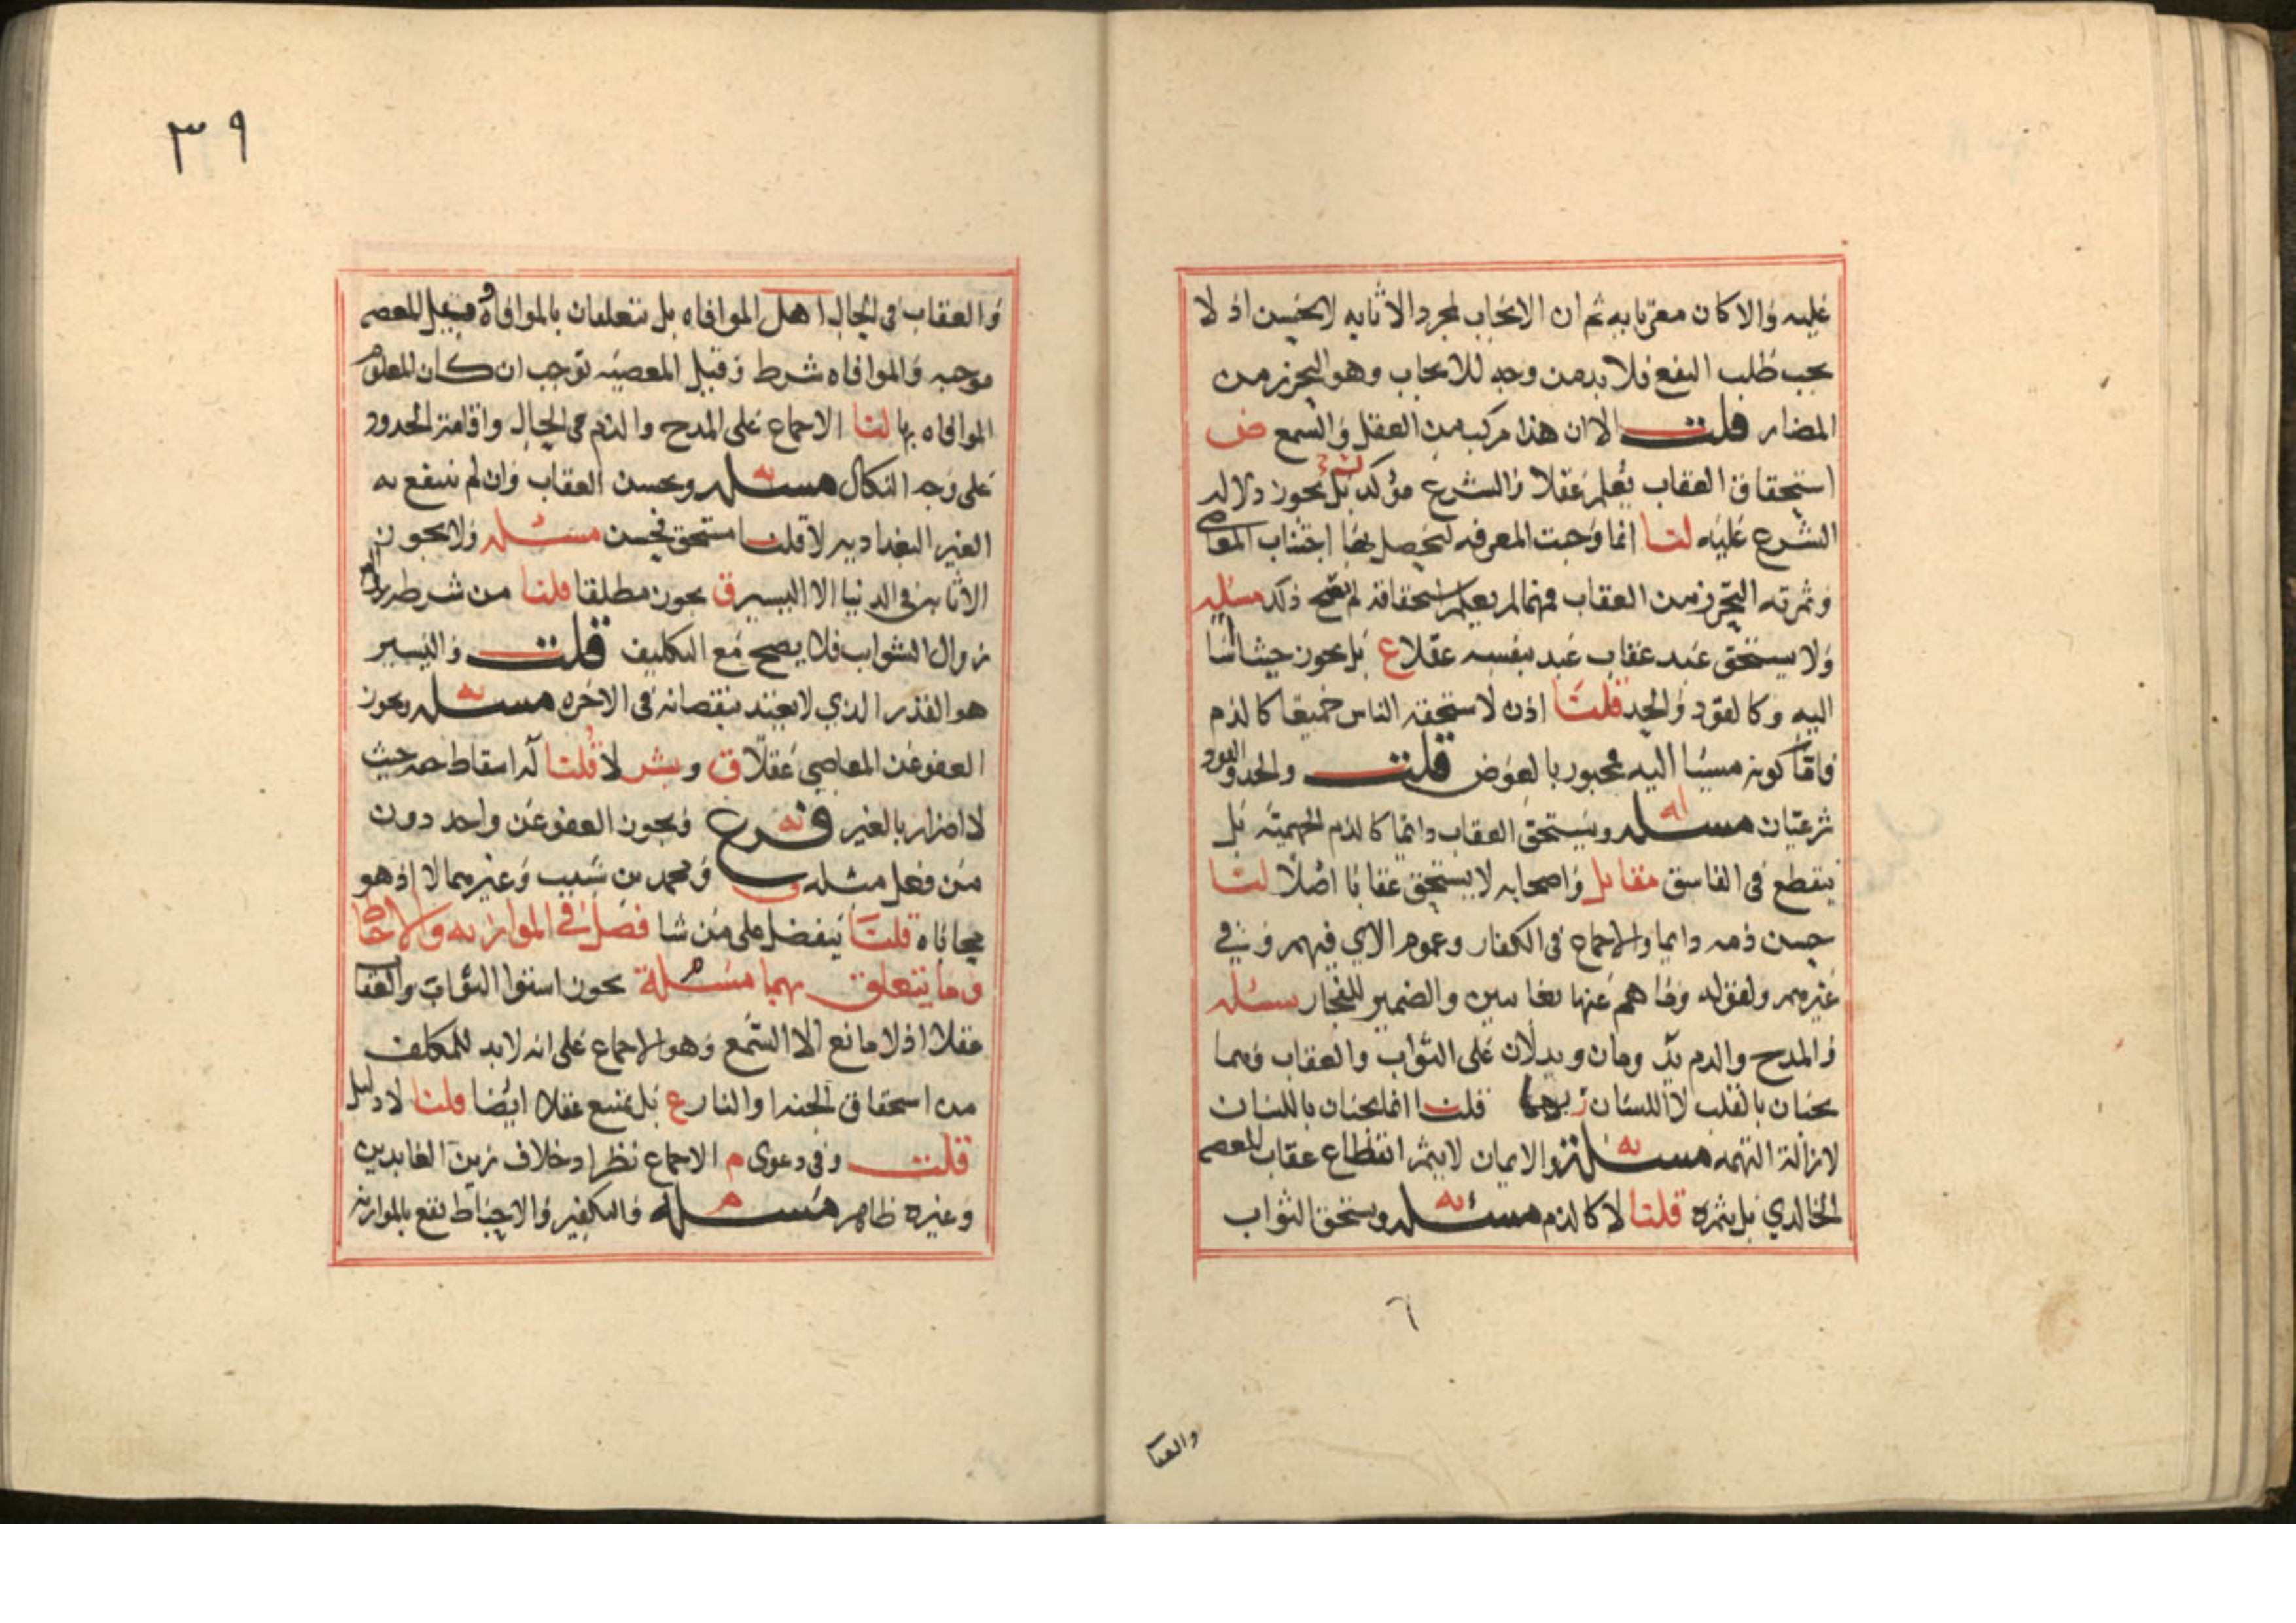 عليه والا كان مغريا به ثم ان الايجاب لمجرد الاثابه لا يحسن اذ لا
يجب طلب النفع فلا بد من وجه للايجاب وهو التحرز من
المضار قلت الا ان هذا مركب من العقل والسمع ض
استحقاق العقاب يعلم عقلا والشرع مؤكد بل يجوز دلاله
الشرع عليه لنا انما وجبت المعرفه ليحصل بها اجتناب المعاصي
وثمرته التحرز من العقاب فمهما لم يعلم استحقاقه لم يصح ذلك مسئله
ولا يستحق عبد عقاب عبد بنفسه عقلا ع بل يجوز حيث اسا
اليه وكالقود والحد قلنا اذن لاستحقه الناس جميعا كالذم
فاما كونه مسيئا اليه فمجبور بالعوض قلت والحد والقود
شرعيان مسئله ويستحق العقاب دائما كالذم الجهميه بل
ينقطع في الفاسق مقاتل واصحابه لا يستحق عقابا اصلا لنا
حسن ذمه دايما والاجماع في الكفار وعموم الاي فيهم وفي
غيرهم ولقوله وما هم عنها بغايبين والضمير للفجار مسئله
والمدح والذم يدومان ويدلان على الثواب والعقاب وهما
يجبان بالقلب لا اللسان قلت انما يجبان باللسان
لازالة التهمه مسئلة والايمان لا يثمر انقطاع عقاب المعصيه
الخالدي بل يثمره قلنا لا كالذم مسئله ويستحق الثواب
٦
والعقا
٣٩
والعقاب في الحال اهل الموافاه بل يتعلقان بالموافاه فقيل المعصيه
موجبه والموافاه شرط وقيل المعصيه توجب ان كان المعلوم
الموافاه بها لنا الاجماع على المدح والذم في الحال واقامة الحدود
على وجه النكال مسئله ويحسن العقاب وان لم ينتفع به
الغير البغداديه لا قلنا مستحق فحسن مسئله ولا يجوز
الاثابه في الدنيا الا اليسير ق يجوز مطلقا قلنا من شرطه
زوال الشواب فلا يصح مع التكليف قلت واليسير
هو القدر الذي لا يعتد بنقصانه في الاخره مسئله ويجوز
العفو عن المعاصي عقلا ق وبشر لا قلنا له اسقاط حقه حيث
لا اضرار بالغير فرع ويجوز العفو عن واحد دون
من فعل مثله ومحمد بن شبيب وغيرهما لا اذ هو
محاباه قلنا يتفضل على من شا فصل في الموازنه والاحباط
وما يتعلق بهما مسئلة يجوز استوا الثواب والعقاب
عقلا اذ لا مانع الا السمع وهو الاجماع على انه لا بد للمكلف
من استحقاق الجنه او النار ع بل يمتنع عقلا ايضا قلنا لا دليل
قلت وفي دعوى م الاجماع نظر اذ خلاف زين العابدين
وغيره ظاهر مسئله والتكفير والاحباط يقع بالموازنه